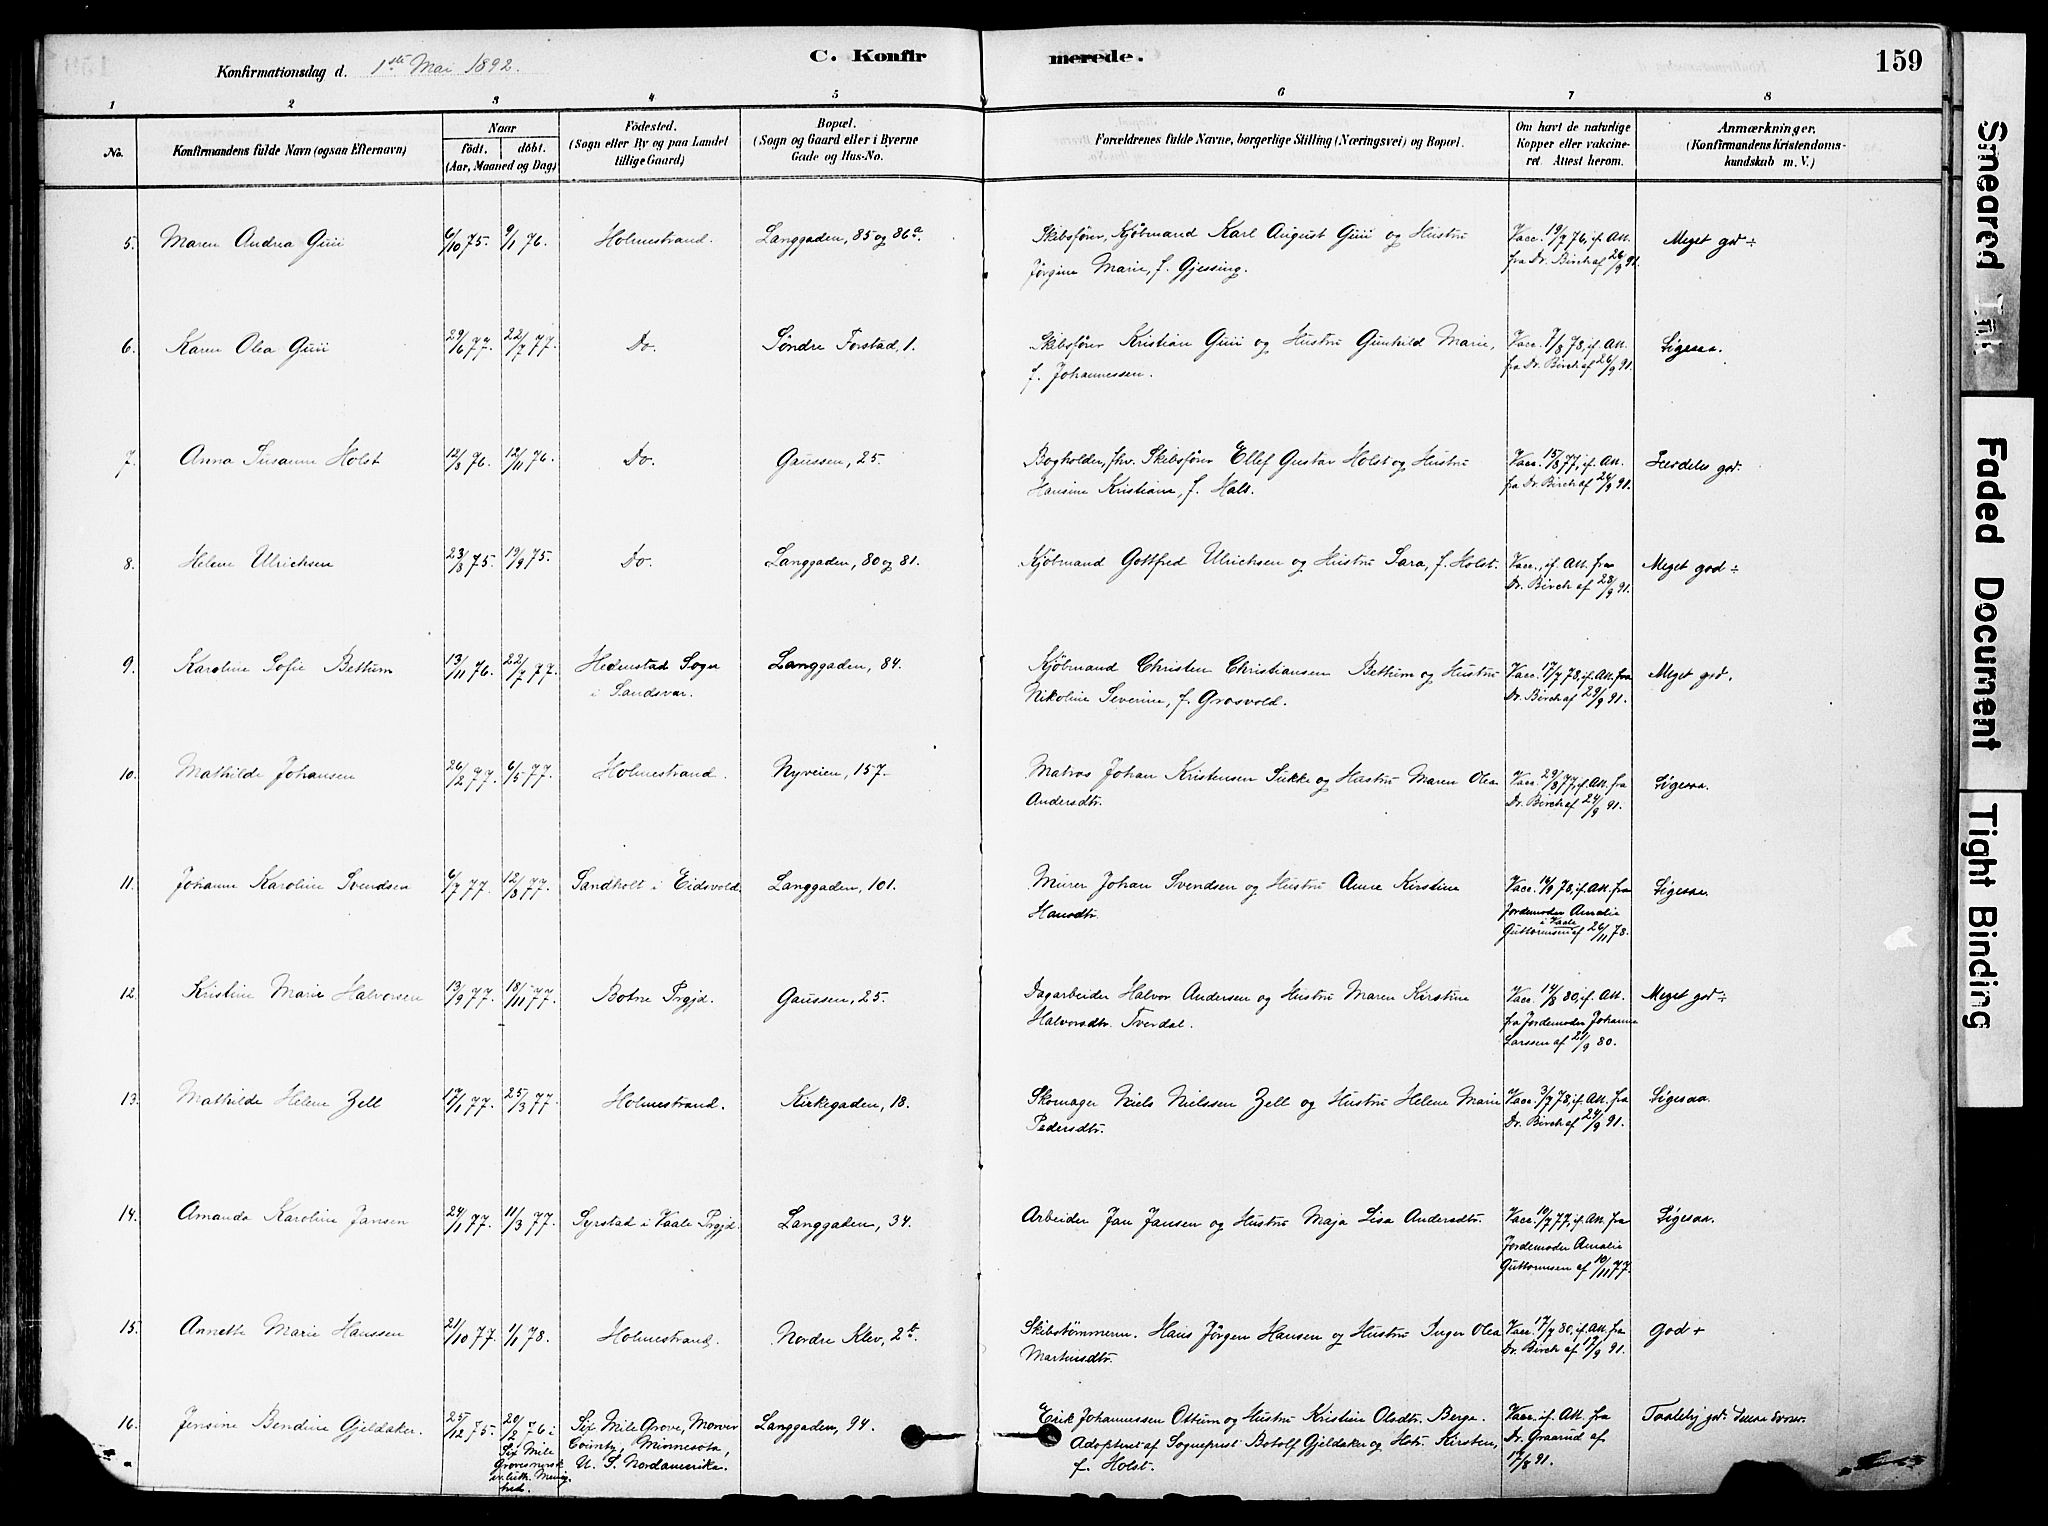 Konfirmationsdag d. 1ste Mai 1892.
C. Konfir
merede.
159
1 2 3 4 5 6 7 8
No.
Konfirmandens fulde Navn (ogsaa Efternavn)
Naar
födt. döbt.
(Aar, Maaned og Dag)
Födested.
(Sogn eller By og paa Landet
tillige Gaard)
Bopæl.
(Sogn og Gaard eller i Byerne
Gade og Hus-No.
Forældrenes fulde Navne, borgerlige Stilling (Næringsvei) og Bopæl.
Om havt de naturlige
Kopper eller vakcine-
ret. Attest herom.
Anmærkninger.
(Konfirmandens Kristendoms-
kundskab m. V.)
5. Maren Andrea Guii 6/10 75. 9/1 76. Holmestrand. Langgaden, 85 og 86a. Skibsfører, Kjöbmand Karl August Guii og Hustru Vacc. 19/7 76, if. Att. Meget god ÷
Jörgine Marie, f. Gjessing. fra Dr. Birch af 26/9 91.
6. Karen Olea Guii 29/6 77. 22/7 77. Do. Söndre Forstad, 1. Skibsförer Kristian Guii og Hustru Gunhild Marie, Vacc. 7/8 78, if. Att. Ligesaa.
f. Johannessen. fra Dr. Birch af 26/9 91.
7. Anna Susanne Holst 12/8 76. 12/11 76. Do. Gaussen, 25. Bogholder, fhv. Skibsförer Ellef Gustav Holst og Hustru Vacc. 15/8 77, if. Att. Særdeles god.
Hansine Kristiane, f. Halt. fra Dr. Birch af 26/9 91.
8. Helene Ulrichsen 23/8 75. 19/9 75. Do. Langgaden, 80 og 81. Kjöbmand Gottfred Ulrichsen og Hustru Sara, f. Holst. Vacc., if. Att. fra Meget god ÷
Dr. Birch af 28/9 91.
9. Karoline Sofie Bettum 13/11 76. 22/7 77. Hedenstad Sogn Langgaden, 84. Kjöbmand Christen Christiansen Bettum og Hustru Vacc. 17/7 78, if. Att. fra Meget god.
i Sandsvær. Nikoline Severine, f. Grosvold. Dr. Birch af 29/9 91.
10. Mathilde Johansen 26/2 77. 6/5 77. Holmestrand. Nyveien, 157. Matros Johan Kristensen Sukke og Hustru Maren Olea Vacc. 29/8 77, if. Att. fra Ligesaa.
Andersdtr. Dr. Birch af 24/9 91.
11. Johanne Karoline Svendsen 6/7 77. 12/8 77. Sandholt i Eidsvold. Langgaden, 101. Murer Johan Svendsen og Hustru Anne Kirstine Vacc. 16/9 78, if. Att. fra Ligesaa.
Hansdtr. Jordemoder Amalie
i Vaale
Guttormsen af 26/11 78.
12. Kristine Marie Halvorsen 13/9 77. 18/11 77. Botne Prgjd. Gaussen, 25. Dagarbeider Halvor Andersen og Hustru Maren Kirstine Vacc. 14/8 80, if. Att. Meget god ÷
Halvorsdtr. Tverdal. fra Jordemoder Johanne
Larssen af 21/9 80.
13. Mathilde Helene Zell 17/1 77. 25/3 77. Holmestrand. Kirkegaden, 18. Skomager Niels Nielssen Zell og Hustru Helene Marie Vacc. 3/9 78, if. Att. fra Ligesaa.
Pedersdtr. Dr. Birch af 24/9 91.
14. Amanda Karoline Jansen 24/1 77. 11/3 77. Syrstad i Vaale Prgjd. Langgaden, 34. Arbeider Jan Jansen og Hustru Maja Lisa Andersdtr. Vacc. 10/7 77, if. Att. fra Ligesaa.
Jordemoder Amalie
Guttormsen af 10/11 77.
15. Annette Marie Hanssen 21/10 77. 1/1 78. Holmestrand. Nordre Klev, 2b. Skibstömmerm. Hans Jörgen Hansen og Hustru Inger Olea Vacc. 17/7 80, if. Att. fra God +
Martinsdtr. Dr. Birch af 17/9 91.
16. Jensine Bendine Gjeldaker. 25/12 75. 20/2 76 i Six Mile Grove, Mower Langgaden, 94. Erik Johannessen Ottum og Hustru Kristine Olsdtr. Berge. Vacc. if. Att. fra Taalelig god.
Six Mile County, Minnesota, Adopteret af Sogneprest Botolf Gjeldaker og Hstr. Kirsten, Dr. Graarud af
Groves norsk U. S. Nordamerika. f. Holst. 17/8 91.
ev. luth. Menig-
hed.
Smeared Ink
Faded Document
Tight Binding